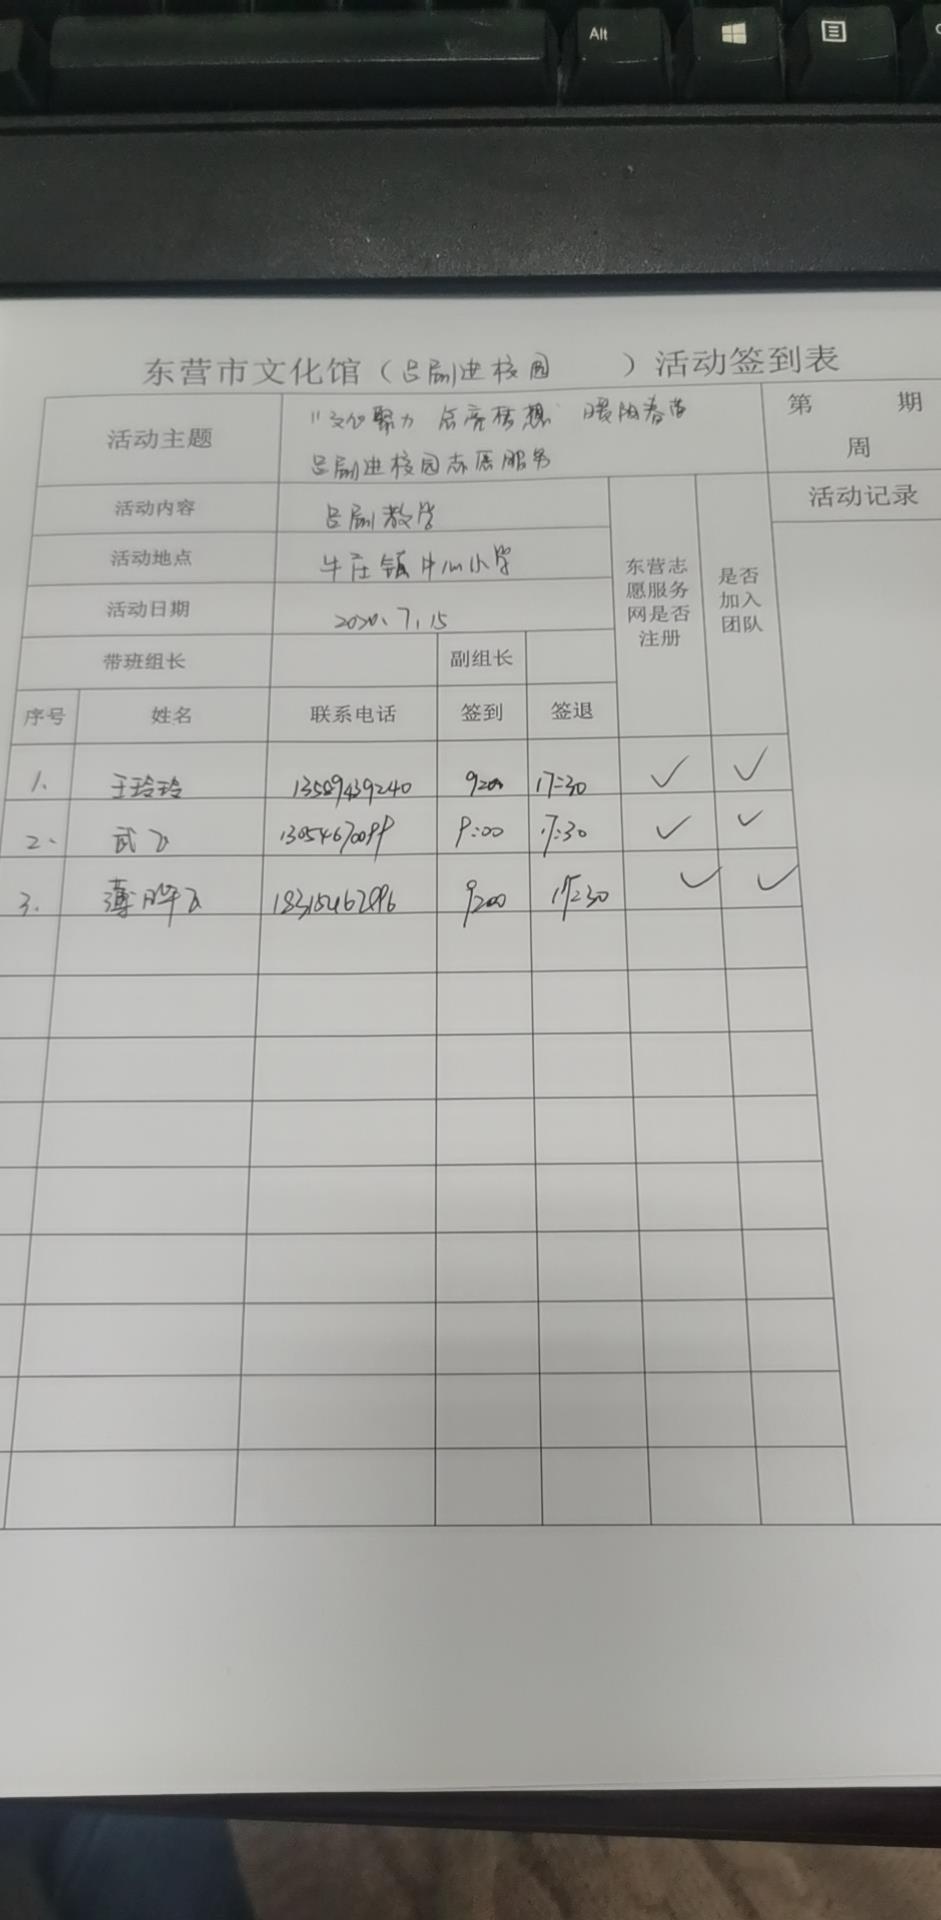 Alt
东营市文化馆（吕剧进校园 ）活动签到表
活动主题
"文化聚力 点亮梦想" 暖阳春苗
吕剧进校园志愿服务
第 期
周
活动内容 吕剧教学
活动记录
活动地点 牛庄镇中心小学
活动日期 2020.7.15
东营志愿服务网是否注册
是否加入团队
带班组长 副组长
序号 姓名 联系电话 签到 签退
1. 王玲玲 13589439240 9:00 17:30 ✓ ✓
2. 武 13054670099 9:00 17:30 ✓ ✓
3. 薄 9:00 17:30 ✓ ✓